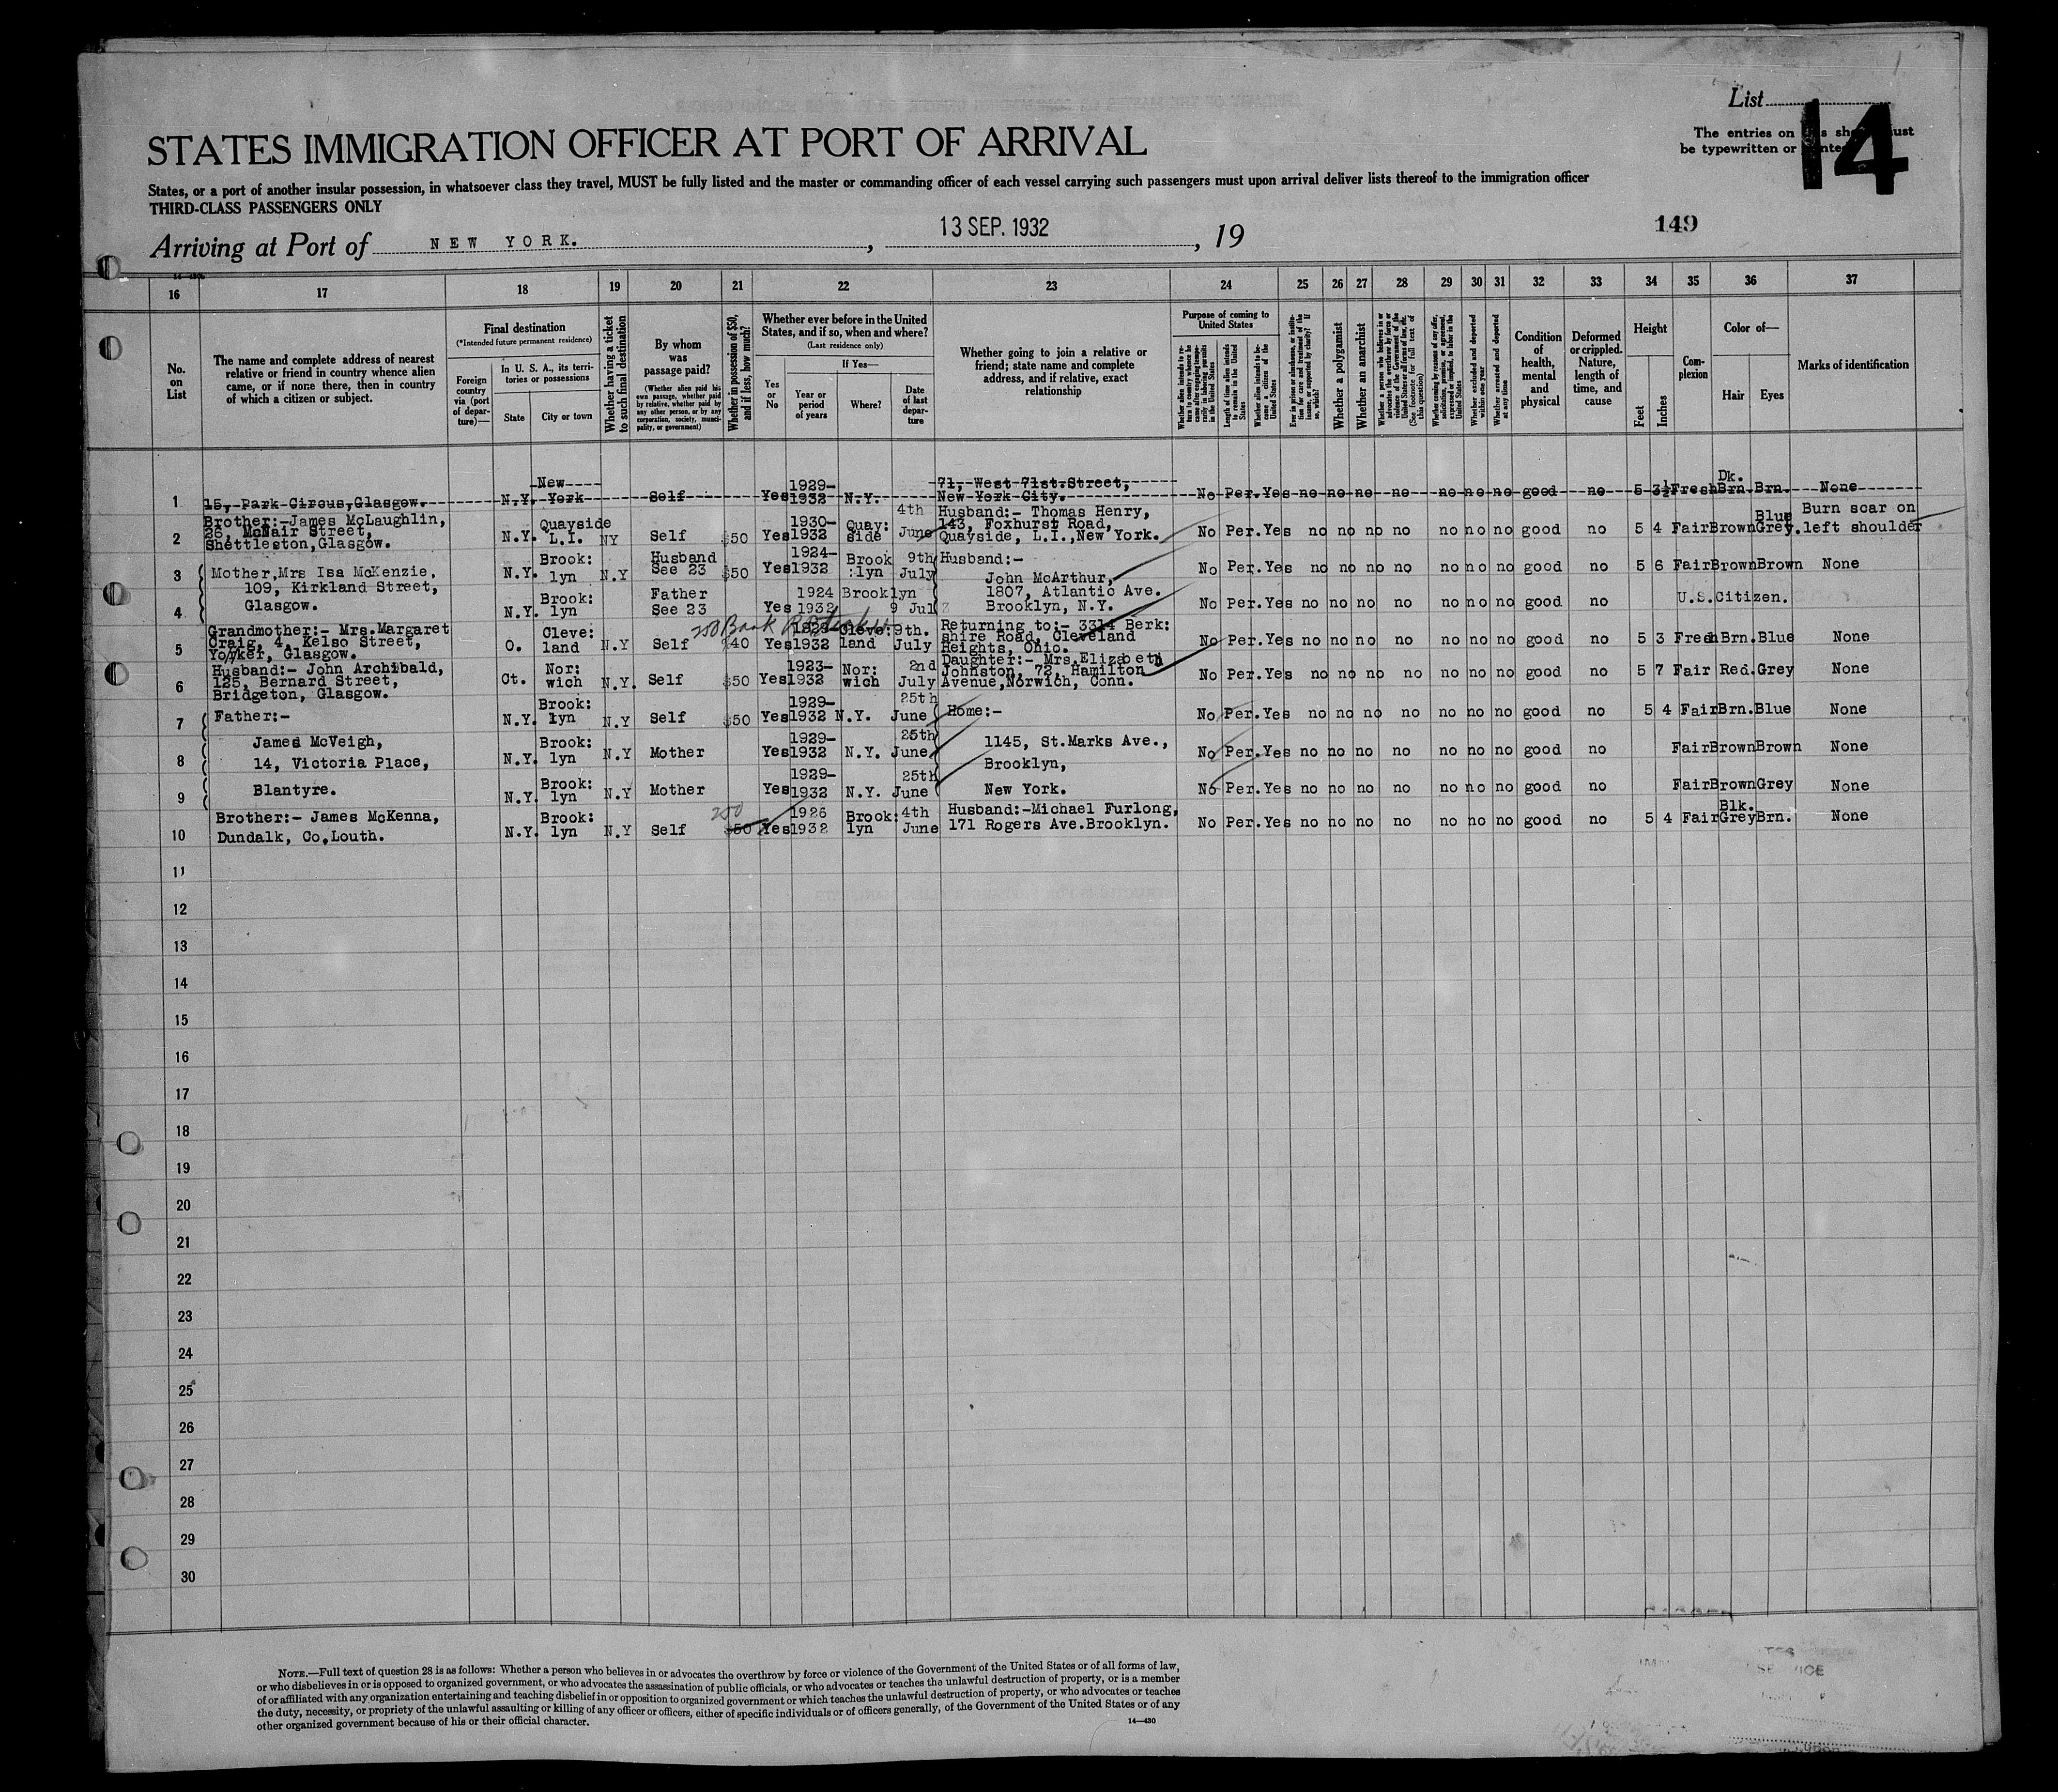 List
14
The entries on this sheet must
be typewritten or printed
STATES IMMIGRATION OFFICER AT PORT OF ARRIVAL
States, or a port of another insular possession, in whatsoever class they travel, MUST be fully listed and the master or commanding officer of each vessel carrying such passengers must upon arrival deliver lists thereof to the immigration officer
THIRD-CLASS PASSENGERS ONLY
149
Arriving at Port of NEW YORK. , 13 SEP. 1932 , 19
16 17 18 19 20 21 22 23 24 25 26 27 28 29 30 31 32 33 34 35 36 37
No. on List
The name and complete address of nearest
relative or friend in country whence alien
came, or if none there, then in country
of which a citizen or subject.
Final destination
(*Intended future permanent residence)
Foreign country via (port of departure)—
In U. S. A., its territories or possessions
State
City or town
Whether having a ticket to such final destination
By whom was passage paid?
(Whether alien paid his own passage, whether paid by relative, whether paid by any other person, or by any corporation, society, municipality, or government)
Whether in possession of $50, and if less, how much?
Whether ever before in the United
States, and if so, when and where?
(Last residence only)
If Yes—
Yes or No
Year or period of years
Where?
Date of last departure
Whether going to join a relative or
friend; state name and complete
address, and if relative, exact
relationship
Purpose of coming to United States
Length of time alien intends to remain in the United States
Whether alien intends to become a citizen of the United States
Whether a polygamist
Whether an anarchist
Whether excluded and deported within one year
Whether arrested and deported at any time
Condition of health, mental and physical
Deformed or crippled. Nature, length of time, and cause
Height
Feet
Inches
Complexion
Color of—
Hair
Eyes
Marks of identification
1 15, Park Circus, Glasgow. N.Y. New York Self Yes 1929-1932 N.Y. 71, West 71st Street, New York City. No Per. Yes no no no no no no no good no 5 3½ Fresh Dk. Brn. Brn. None
2 Brother:-James McLaughlin, 36, McNair Street, Shettleston, Glasgow. N.Y. Quayside L.I. NY Self $50 Yes 1930-1932 Quay: side 4th June Husband:- Thomas Henry, 143, Foxhurst Road, Quayside, L.I., New York. No Per. Yes no no no no no no no good no 5 4 Fair Brown Blue Grey. Burn scar on left shoulder
3 Mother, Mrs Isa McKenzie, N.Y. Brook: lyn N.Y Husband See 23 $50 Yes 1924-1932 Brook :lyn 9th July Husband:- John McArthur, No Per. Yes no no no no no no no good no 5 6 Fair Brown Brown None
109, Kirkland Street,
4 Glasgow. N.Y. Brook: lyn Father See 23 Yes 1924 1932 Brooklyn 9 Jul 1807, Atlantic Ave. Brooklyn, N.Y. No Per. Yes no no no no no no no good no U.S. Citizen.
5 Grandmother:- Mrs. Margaret Craig, 4, Kelso Street, Yoker, Glasgow. O. Cleve: land N.Y Self 250 Bank $40 Yes 1932 Cleve: land 9th. July Returning to:- 3314 Berk: shire Road, Cleveland Heights, Ohio. No Per. Yes no no no no no no no good no 5 3 Fresh Brn. Blue None
6 Husband:- John Archibald, 125, Bernard Street, Bridgeton, Glasgow. Ct. Nor: wich N.Y. Self $50 Yes 1923-1932 Nor: wich 2nd July Daughter:- Mrs. Elizabeth Johnston, 72, Hamilton Avenue, Norwich, Conn. No Per. Yes no no no no no no no good no 5 7 Fair Red. Grey None
7 Father:- N.Y. Brook: lyn N.Y Self $50 Yes 1929-1932 N.Y. 25th June Home:- No Per. Yes no no no no no no no good no 5 4 Fair Brn. Blue None
8 James McVeigh, 14, Victoria Place, N.Y. Brook: lyn N.Y Mother Yes 1929-1932 N.Y. 25th June 1145, St. Marks Ave., Brooklyn, No Per. Yes no no no no no no no good no Fair Brown Brown None
9 Blantyre. N.Y. Brook: lyn N.Y Mother Yes 1929-1932 N.Y. 25th June New York. No Per. Yes no no no no no no no good no Fair Brown Grey None
10 Brother:- James McKenna, Dundalk, Co, Louth. N.Y. Brook: lyn N.Y Self 250 $50 Yes 1926 1932 Brook: lyn 4th June Husband:-Michael Furlong, 171 Rogers Ave. Brooklyn. No Per. Yes no no no no no no no good no 5 4 Fair Blk. Grey Brn. None
11
12
13
14
15
16
17
18
19
20
21
22
23
24
25
26
27
28
29
30
NOTE.—Full text of question 28 is as follows: Whether a person who believes in or advocates the overthrow by force or violence of the Government of the United States or of all forms of law,
or who disbelieves in or is opposed to organized government, or who advocates the assassination of public officials, or who advocates or teaches the unlawful destruction of property, or is a member
of or affiliated with any organization entertaining and teaching disbelief in or opposition to organized government or which teaches the unlawful destruction of property, or who advocates or teaches
the duty, necessity, or propriety of the unlawful assaulting or killing of any officer or officers, either of specific individuals or of officers generally, of the Government of the United States or of any
other organized government because of his or their official character.
14—430